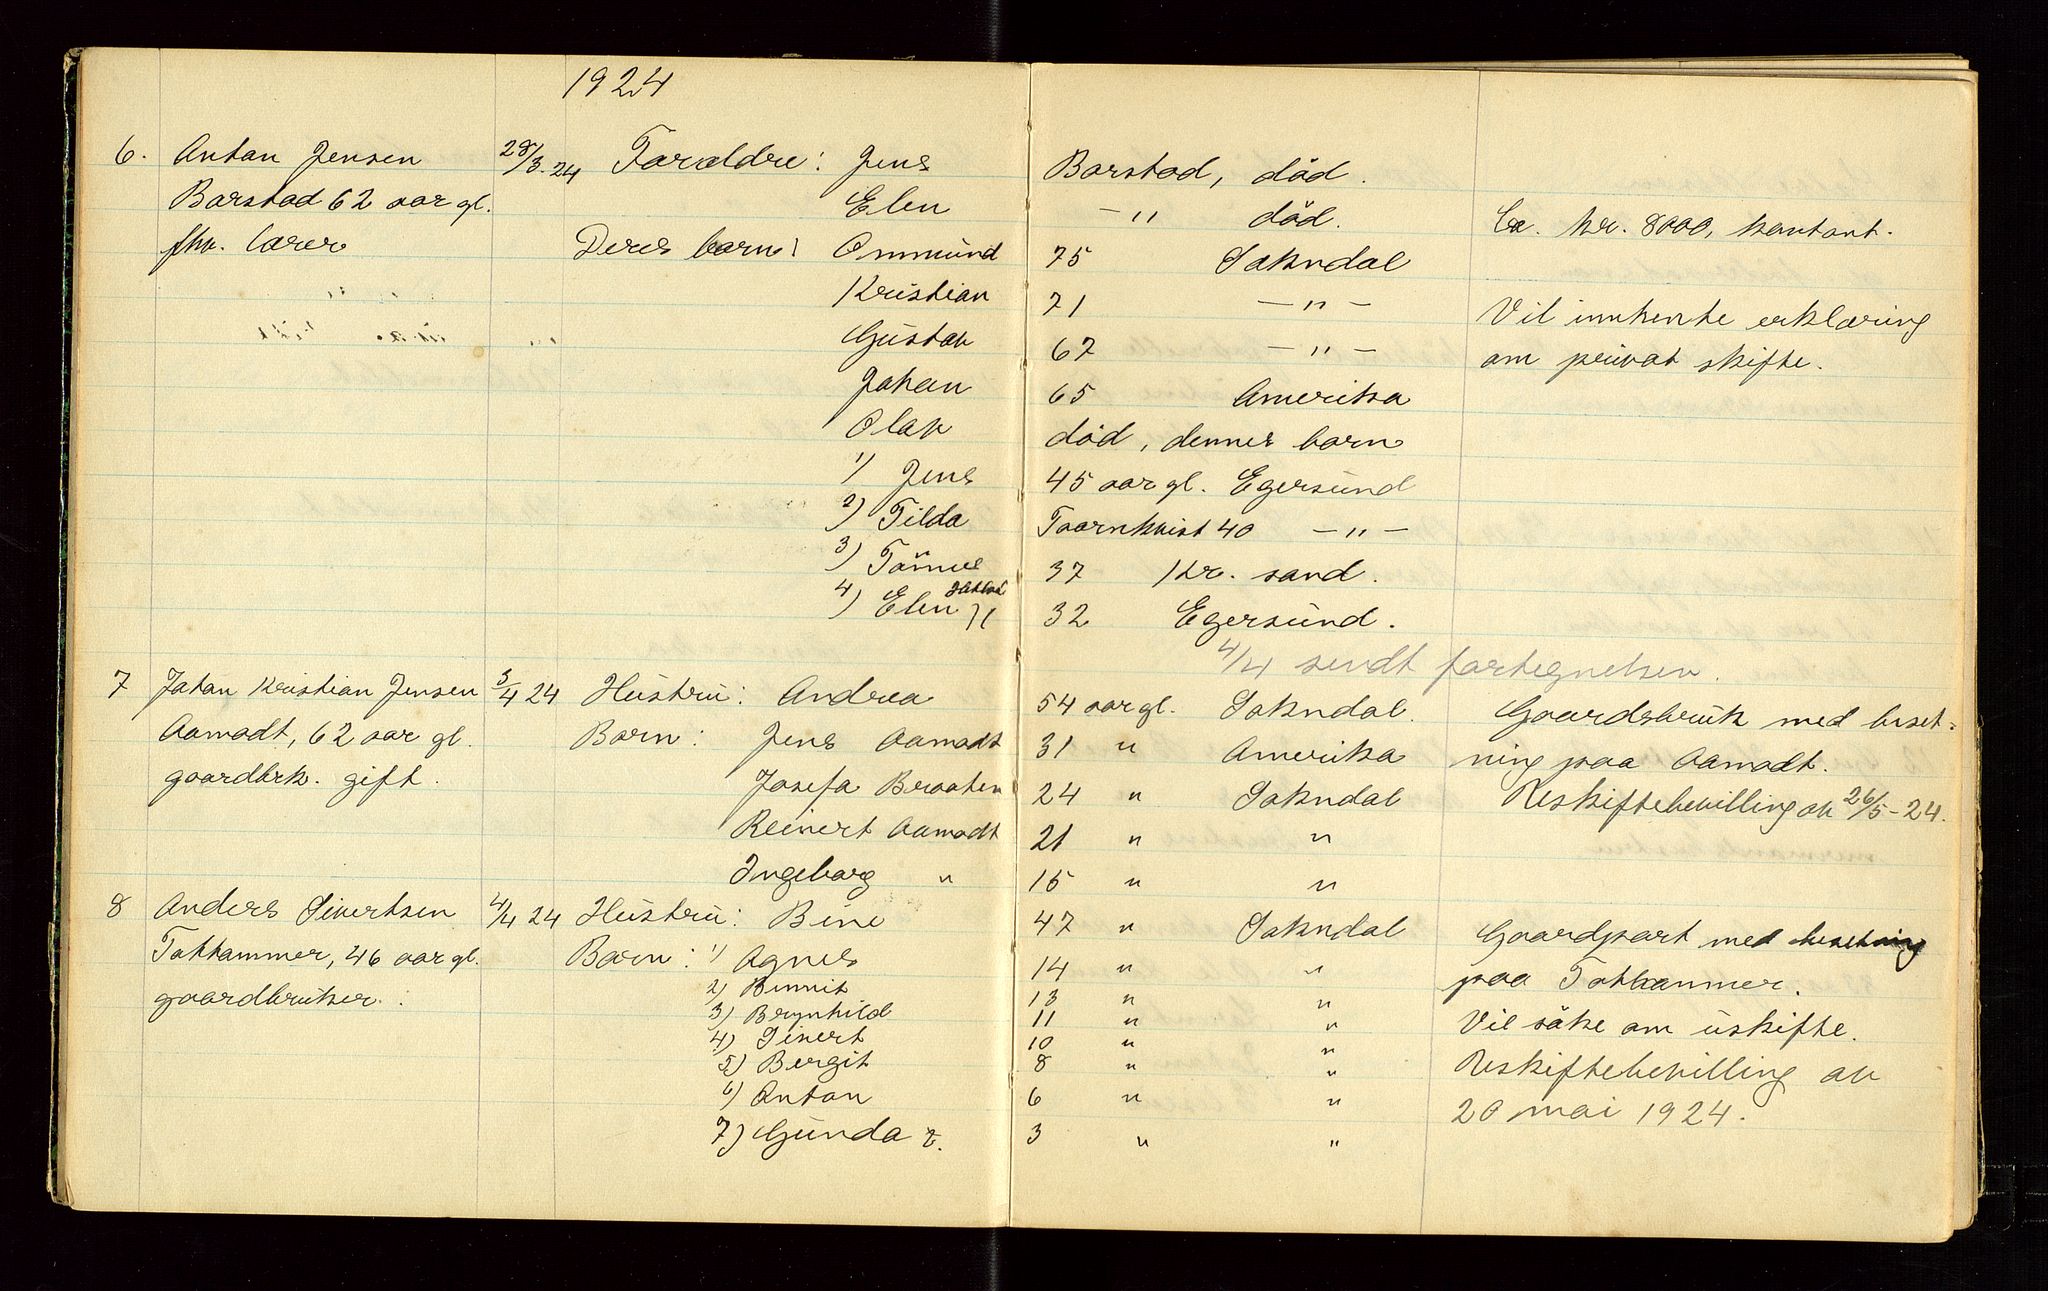 1924
6. Anton Jensen 28/3-24 Foreldre: Jens Barstad, död.
Barstad 62 aar gl. Elen —"— död. Ca. kr. 8000, kontant.
fhv. lærer Deres barn: Ommund 75 Sokndal
Kristian 71 —"— Vil innhente erklæring
Gustav 67 —"— om privat skifte.
Johan 65 Amerika
Olav död, dennes barn
1) Jens 45 aar gl. Egersund
2) Tilda Toornkvist 40 —"—
3) Tönnes 37 Kr. sand.
4) Elen 32 Egersund.
4/4 sendt fortegnelsen.
7 Johan Kristian Jensen 3/4 24 Hustru: Andrea 54 aar gl. Sokndal. Gaardsbruk med beset-
Aamodt, 62 aar gl. Barn: Jens Aamodt 31 " Amerika ning paa Aamodt.
gaardbrk. gift. Josefa Braaten 24 " Sokndal Uskiftebevilling av 26/5-24.
Reinert Aamodt 21 " "
Ingeborg " 15 " "
8 Anders Sivertsen 4/4 24 Hustru: Bine 47 " Sokndal Gaardpart med besetning
Tokhammer, 46 aar gl. Barn: 1) Agnes 14 " " paa Tokhammer.
gaardbruker. 2) Bennit 13 " "
3) Brynhild 11 " " Vil söke om uskifte.
4) Sivert 10 " "
5) Bergit 8 " " Uskiftebevilling av
6) Anton 6 " " 20 mai 1924.
7) Gunda 3 " "